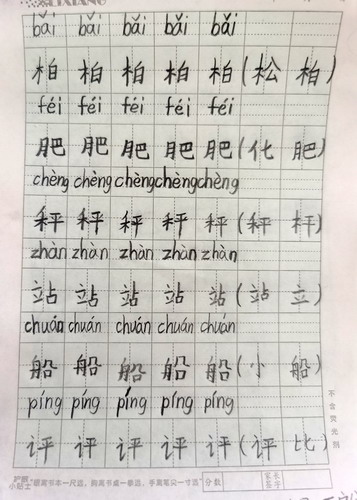 LIXIANG
bǎi bǎi bǎi bǎi bǎi
柏 柏 柏 柏 柏 (松 柏)
féi féi féi féi féi
肥 肥 肥 肥 肥 (化 肥)
chèng chèng chèng chèng chèng
秤 秤 秤 秤 秤 (秤 杆)
zhàn zhàn zhàn zhàn zhàn
站 站 站 站 站 (站 立)
chuán chuán chuán chuán chuán
船 船 船 船 船 (小 船)
píng píng píng píng píng
评 评 评 评 评 (评 比)
不含荧光剂
小贴士 "眼离书本一尺远，胸离书桌一拳远，手离笔尖一寸远" 分数 家长签字